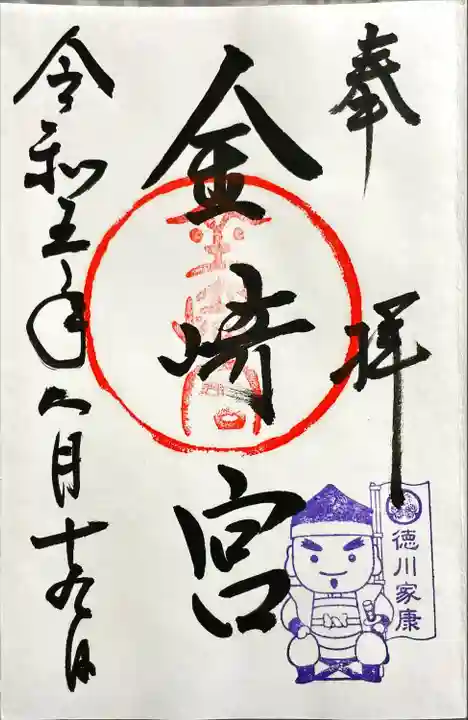 奉拝
金崎宮
令和五年八月十九日
徳川家康